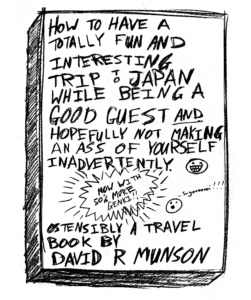 HOW TO HAVE A
TOTALLY FUN AND
INTERESTING
TRIP TO JAPAN
WHILE BEING A
GOOD GUEST AND
HOPEFULLY NOT MAKING
AN ASS OF YOURSELF
INADVERTENTLY.
NOW WITH
50% MORE
GENKI!
OSTENSIBLY A TRAVEL
BOOK BY
DAVID R MUNSON